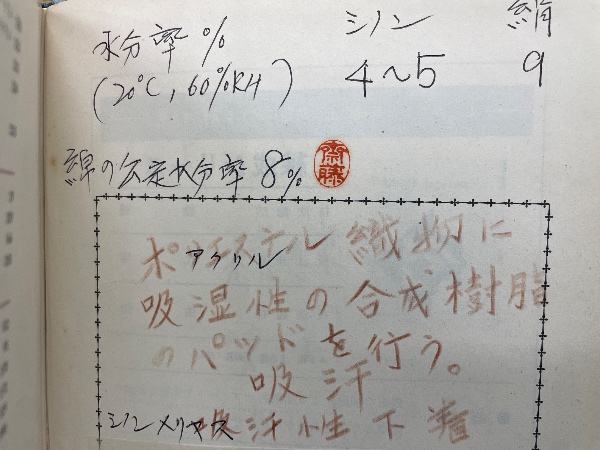 シノン 絹
水分率 %
(20°C, 60%RH) 4~5 9
綿の公定水分率 8% 齋藤
ポリエステル織物に
アクリル
吸湿性の合成樹脂
のパッドを行う。
吸汗
シノンメリヤス 吸汗性下着